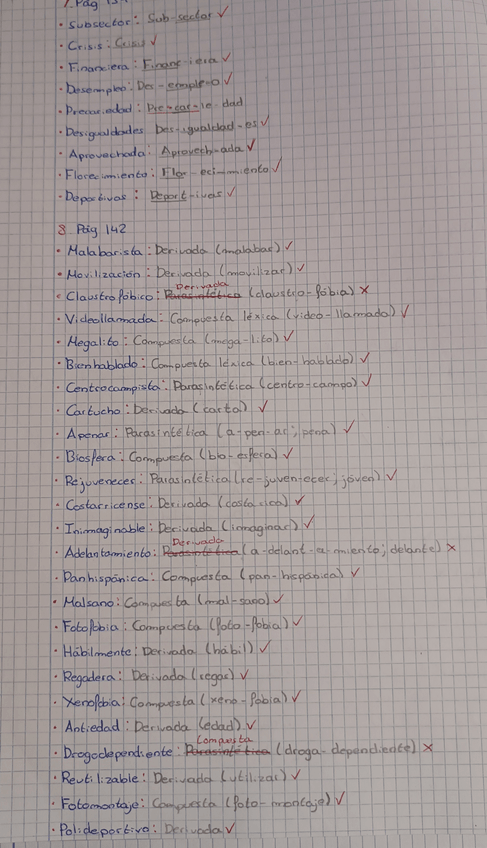 Pág
· Subsector: Sub-sector ✓
· Crisis: Crisis ✓
· Financiera: Financ-iera ✓
· Desempleo: Des-emple-o ✓
· Precariedad: Pre-car-ie-dad
· Desigualdades Des-igualdad-es ✓
· Aprovechada: Aprovech-ada ✓
· Florecimiento: Flor-eci-miento ✓
· Deportivas: Deport-ivas ✓
8 Pág 142
· Malabarista: Derivada (malabar) ✓
· Movilización: Derivada (movilizar) ✓
Derivada
· Claustrofóbico: Parasintética (claustro-fobia) ✗
· Videollamada: Compuesta léxica (video-llamada) ✓
· Megalito: Compuesta (mega-lito) ✓
· Bienhablado: Compuesta léxica (bien-hablado) ✓
· Centrocampista: Parasintética (centro-campo) ✓
· Cartucho: Derivada (carta) ✓
· Apenar: Parasintética (a-pen-ar; pena) ✓
· Biosfera: Compuesta (bio-esfera) ✓
· Rejuvenecer: Parasintética (re-juven-ecer; joven) ✓
· Costarricense: Derivada (costa rica) ✓
· Inimaginable: Derivada (inmaginar) ✓
Derivada
· Adelantamiento: Parasintética (a-delant-a-miento; delante) ✗
· Panhispánica: Compuesta (pan-hispánica) ✓
· Malsano: Compuesta (mal-sano) ✓
· Fotofobia: Compuesta (foto-fobia) ✓
· Hábilmente: Derivada (hábil) ✓
· Regadera: Derivada (regar) ✓
· Xenofobia: Compuesta (xeno-fobia) ✓
· Antiedad: Derivada (edad) ✓
Compuesta
· Drogodependiente: Parasintética (droga-dependiente) ✗
· Reutilizable: Derivada (utilizar) ✓
· Fotomontaje: Compuesta (foto-montaje) ✓
· Polideportivo: Derivada ✓